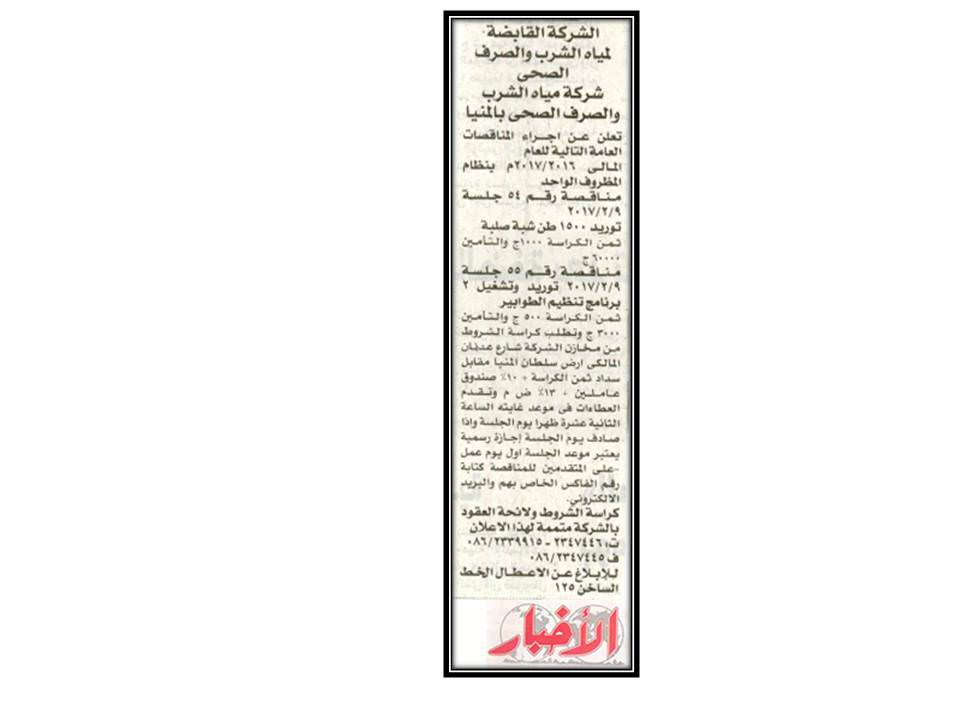 الشركة القابضة
لمياه الشرب والصرف
الصحى
شركة مياه الشرب
والصرف الصحى بالمنيا
تعلن عن اجراء المناقصات
العامة التالية للعام
المالى ٢٠١٧/٢٠١٦م بنظام
المظروف الواحد
مناقصة رقم ٥٤ جلسة
٢٠١٧/٢/٩
توريد ١٥٠٠ طن شبة صلبة
ثمن الكراسة ١٠٠٠ج والتأمين
٦٠٠٠٠ ج
مناقصة رقم ٥٥ جلسة
٢٠١٧/٢/٩ توريد وتشغيل ٢
برنامج تنظيم الطوابير
ثمن الكراسة ٥٠٠ ج والتأمين
٣٠٠٠ ج وتطلب كراسة الشروط
من مخازن الشركة شارع عدنان
المالكى ارض سلطان المنيا مقابل
سداد ثمن الكراسة + ١٠٪ صندوق
عاملين + ١٣٪ ض م وتقدم
العطاءات فى موعد غايته الساعة
الثانية عشرة ظهرا يوم الجلسة واذا
صادف يوم الجلسة إجازة رسمية
يعتبر موعد الجلسة اول يوم عمل
-على المتقدمين للمناقصة كتابة
رقم الفاكس الخاص بهم والبريد
الالكتروني.
كراسة الشروط ولائحة العقود
بالشركة متممة لهذا الاعلان
ت: ٢٣٤٧٤٤٦ - ٠٨٦/٢٣٣٩٩١٥
ف ٠٨٦/٢٣٤٧٤٤٥
للإبلاغ عن الاعطال الخط
الساخن ١٢٥
الأخبار